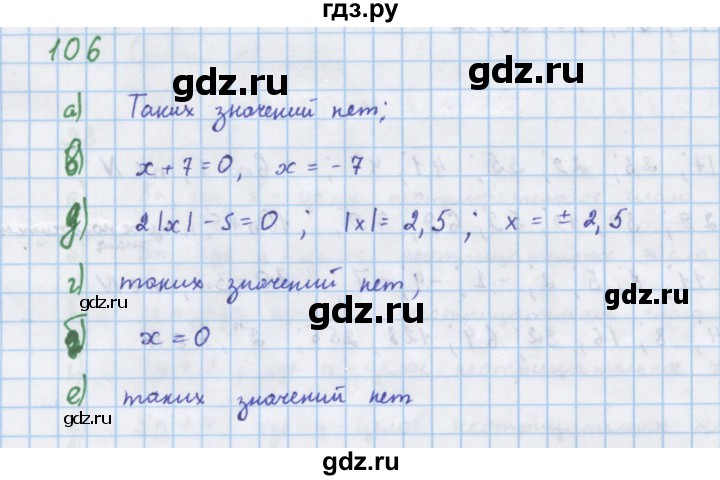 гдз.ру
106
gdz.ru
а) Таких значений нет;
gdz.ru
в) x + 7 = 0, x = - 7
д) 2|x| - 5 = 0 ; |x| = 2,5 ; x = ± 2,5
г) таких значений нет;
gdz.ru
gdz.ru
gdz.ru
б) x = 0
е) таких значений нет
gdz.ru
gdz.ru
gdz.ru